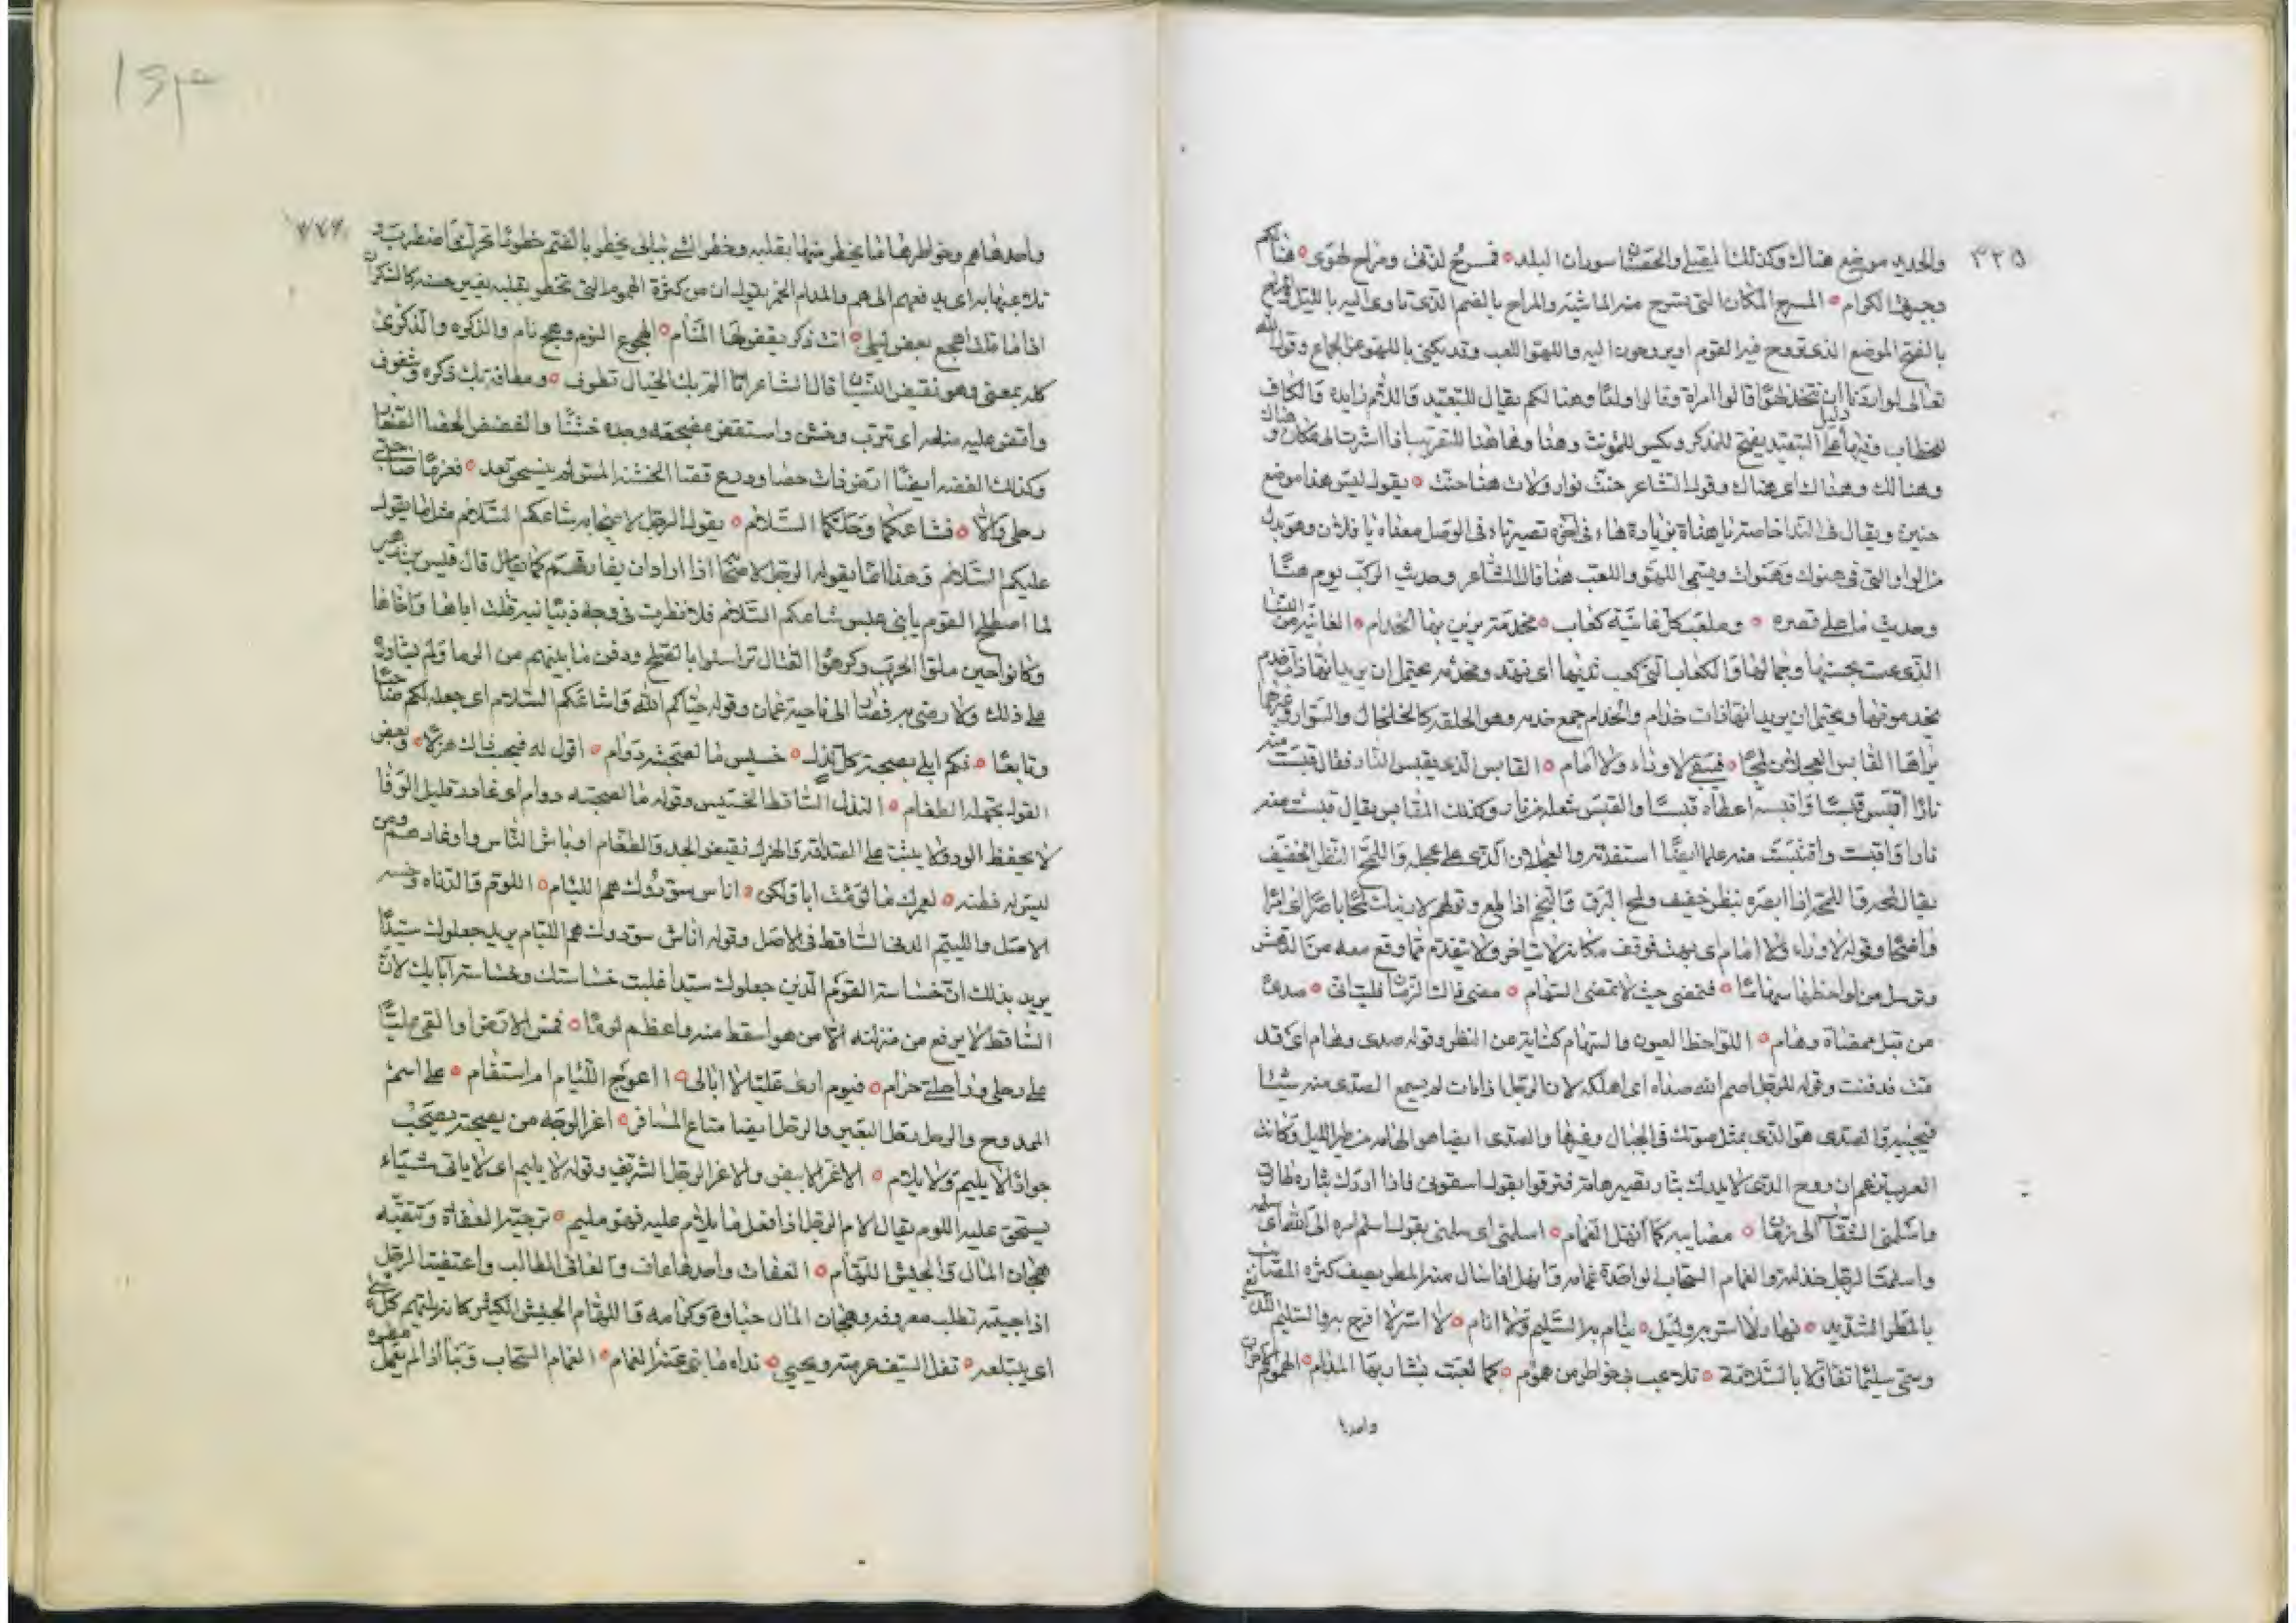 ٣٣٥
والحديد موضع هناك وكذلك المقيل والحصنان سوران البلد ه فمسرح لذتى ومراح لهوى ه هنالكم
وجيرتها الكرام ه المسرح المكان التى تسرح منه الماشية والمراح بالضم الذى تاوى اليه بالليل
بالفتح الموضع الذى تروح فيه القوم او يروحون اليه واللهو اللعب وقد يكنى باللهو عن الجماع وقوله
تعالى لو اردنا ان نتخذ لهوا قالوا امراة وقالوا ولدا وهنا لكم يقال للتبعيد واللام زايدة والكاف
للخطاب وفيها دليل على التبعيد يفتح للمذكر ويكسر للمونث وهنا وهاهنا للتقريب اذا اشرت الى مكان وهناك
وهنالك وهذاك اى هناك وقول الشاعر حنت نوار ولات هنا حنت ه يقول ليس هذا موضع
حنين ويقال فى الندا خاصة يا هناة بزيادة هاء فى اخره تصير تاء فى الوصل معناه يا فلان وهو بدل
من الواو التى فى هنوك وهنوات ويسمى اللهو واللعب هنا قال الشاعر وحديث الركب يوم هنا
وحديث ما على قصره ه وملعب كل غانية كعاب ه مخدمة يزين بها الخدام ه الغانية من النسا
الذى غنت بحسنها وجمالها والكعاب التى كعب ثديها اى نهد ومخدمه يحتمل ان يريد انها ذات خدم
يخدمونها ويحتمل ان يريد انها ذات خدام والخدام جمع خدمه وهو الحلقه كالخلخال والسوار وغيرها
يراها القابس العجلان لمحا ه فيبقى لا وراء ولا امام ه القابس الذى يقبس النار فقال قبست منه
نارا اقبس قبسا واقبسه اعطاه قبسا والقبس شعله من نار وكذلك المقابس يقال قبست منه
نارا واقبست واقتبست منه علما ايضا استفدته والعجلان الذى على عجله واللمح النظر الخفيف
يقال لمحه والمحه اذا ابصره بنظر خفيف ولمح البرق والنجم اذا لمع وقولهم لارينك لمحا باصرا اى امرا
واضحا وقوله لا وراء ولا امام اى بهت فوقف مكانه لا يتاخر ولا يتقدم مما وقع معه من الدهش
وترسل من لواحظها سهاما ه فتمضى حيث لا تمضى السهام ه مضى ذاك الزمان فليتانى ه صدى
من قبل ممضاه وهام ه اللواحظ العيون والسهام كناية عن النظر وقوله صدى وهام اى قد
مت فدفنت وقوله للرجل اصم الله صداه اى اهلكه لان الرجل اذا مات لم يسمع الصدى منه شيئا
فيجيبه والصدى هو الذى يمثل صوتك فى الجبال وغيرها والصدى ايضا هو الهامه من طير الليل وكانت
العرب تزعم ان روح الذى لا يدرك بثاره تصير هامة فتزقوا بقول اسقونى فاذا ادرك بثاره طارت
واسلمنى الشقا الى زمان ه مصايبه كما انهل الغمام ه اسلمنى اى سلمنى يقول اسلم امره الى الله اى سلمه
واسلمت الرجل خذلته والغمام السحاب الواحدة غمامه وانهل اذا سال منه المطر يصف كثره المصائب
بالمطر الشديد ه نهار لا اسر به وليل ه ينام به السليم ولا انام ه لا اسر لا افرح به والسليم
وسمى سليما تفاولا بالسلامة ه تلاعب بى خواطر من هموم ه كما لعبت بشاربها المدام ه الهموم
واحدها
٣٣٦
واحدها هم وخواطرها ما يخطر منها بقلبه وخطر الشى ببالى يخطر بالضم خطورا
تلاعبها به اى يدفعهم الى هم والمدام الخمر يقول ان من كثرة الهموم التى تخطر بقلبه يغيب حسه كالسكران
اذا ما قلت اهجع بعض ليلى ه اتت ذكر يقض لها المنام ه الهجوع النوم وهجع نام والذكره والذكرى
كله بمعنى وهو نقيض النسيان قال الشاعر انا الم بك الخيال تطوف ه ومطافه بك ذكره وشغوف
واقض عليه مضجعه اى تترب وخشن واستقض مضجعه وجده خشنا والقضض الحصا الصغار
وكذلك القضه ايضا ارض ذات حصا ودرع قضا الخشنة المس لم ينسحق بعد ه فعزما صاحبى
رحلى والا ه فشاعكما وحلكما السلام ه يقول الرجل لاصحابه شاعكم السلام مثل ما يقول
عليكم السلام وهذا انما يقوله الرجل لاصحابه اذا اراد ان يفارقهم كما قال قيس بن زهير
لما اصطلح القوم يا بنى عبس شاعكم السلام فلا نظرت فى وجه ذبيانيه قتلت اباها واخاها
وكانوا حين ملوا الحرب وكرهوا القتال تراسلوا بالصلح ودفن ما بينهم من الدما ولم يشاوره
على ذلك ولا رضى به فصار الى ناحية عمان وقوله حياكم الله واشاعكم السلام اى جعله لكم صاحبا
وتابعا ه فكم ابلى بصحبة كل نذل ه خسيس ما لصحبته دوام ه اقول له فيحسب ذاك هزلا ه وبعض
القول يجهله الطغام ه النذل الساقط الخسيس وقوله ما لصحبته دوام اى غادر قليل الوفا
لا يحفظ الود ولا يثبت على الصداقه والهزل نقيض الجد والطغام اوباش الناس واوغادهم ومن
ليس له فطنه ه لعمرك ما لومت ابا ولكن ه اناس سودوك هم اللئام ه اللوم والدناه وخسه
الاصل واللييم الدنى الساقط فى الاصل وقوله اناس سودوك هم الليام يريد جعلوك سيدا
يريد بذلك ان خساسة القوم الذين جعلوك سيدا غلبت خساستك وخساسة ابايك لان
الساقط لا يرفع من منزلته الا من هو اسقط منه واعظم لوما ه فمس الارض والقى عليا
على رحلى وراحلتى حرام ه فيوم ارى عليا لا ابالى ه ااعوج اللئيام ام استقام ه على اسم
الممدوح والرحل رحل البعير والرحل ايضا متاع المسافر ه اغر الوجه من يصحبه يصحب
جوادا لا يليم ولا يلام ه الاغر الابيض والاغر الرجل الشريف وقوله لا يليم اى لا ياتى شياء
يستحق عليه اللوم يقال الام الرجل اذا فعل ما يلام عليه فهو مليم ه ترجيه العفاة وتتقيه
هجان المال والجيش اللهام ه العفات واحدها عاف والعافى الطالب واعتفيت الرجل
اذا جيته تطلب معروفه وهجان المال خياره وكرامه واللهام الجيش الكثير كانه يلتهم كل شى
اى يبتلعه ه تفل السيف عزمته ويحيى ه نداه ما تى غمر الغمام ه الغمام السحاب